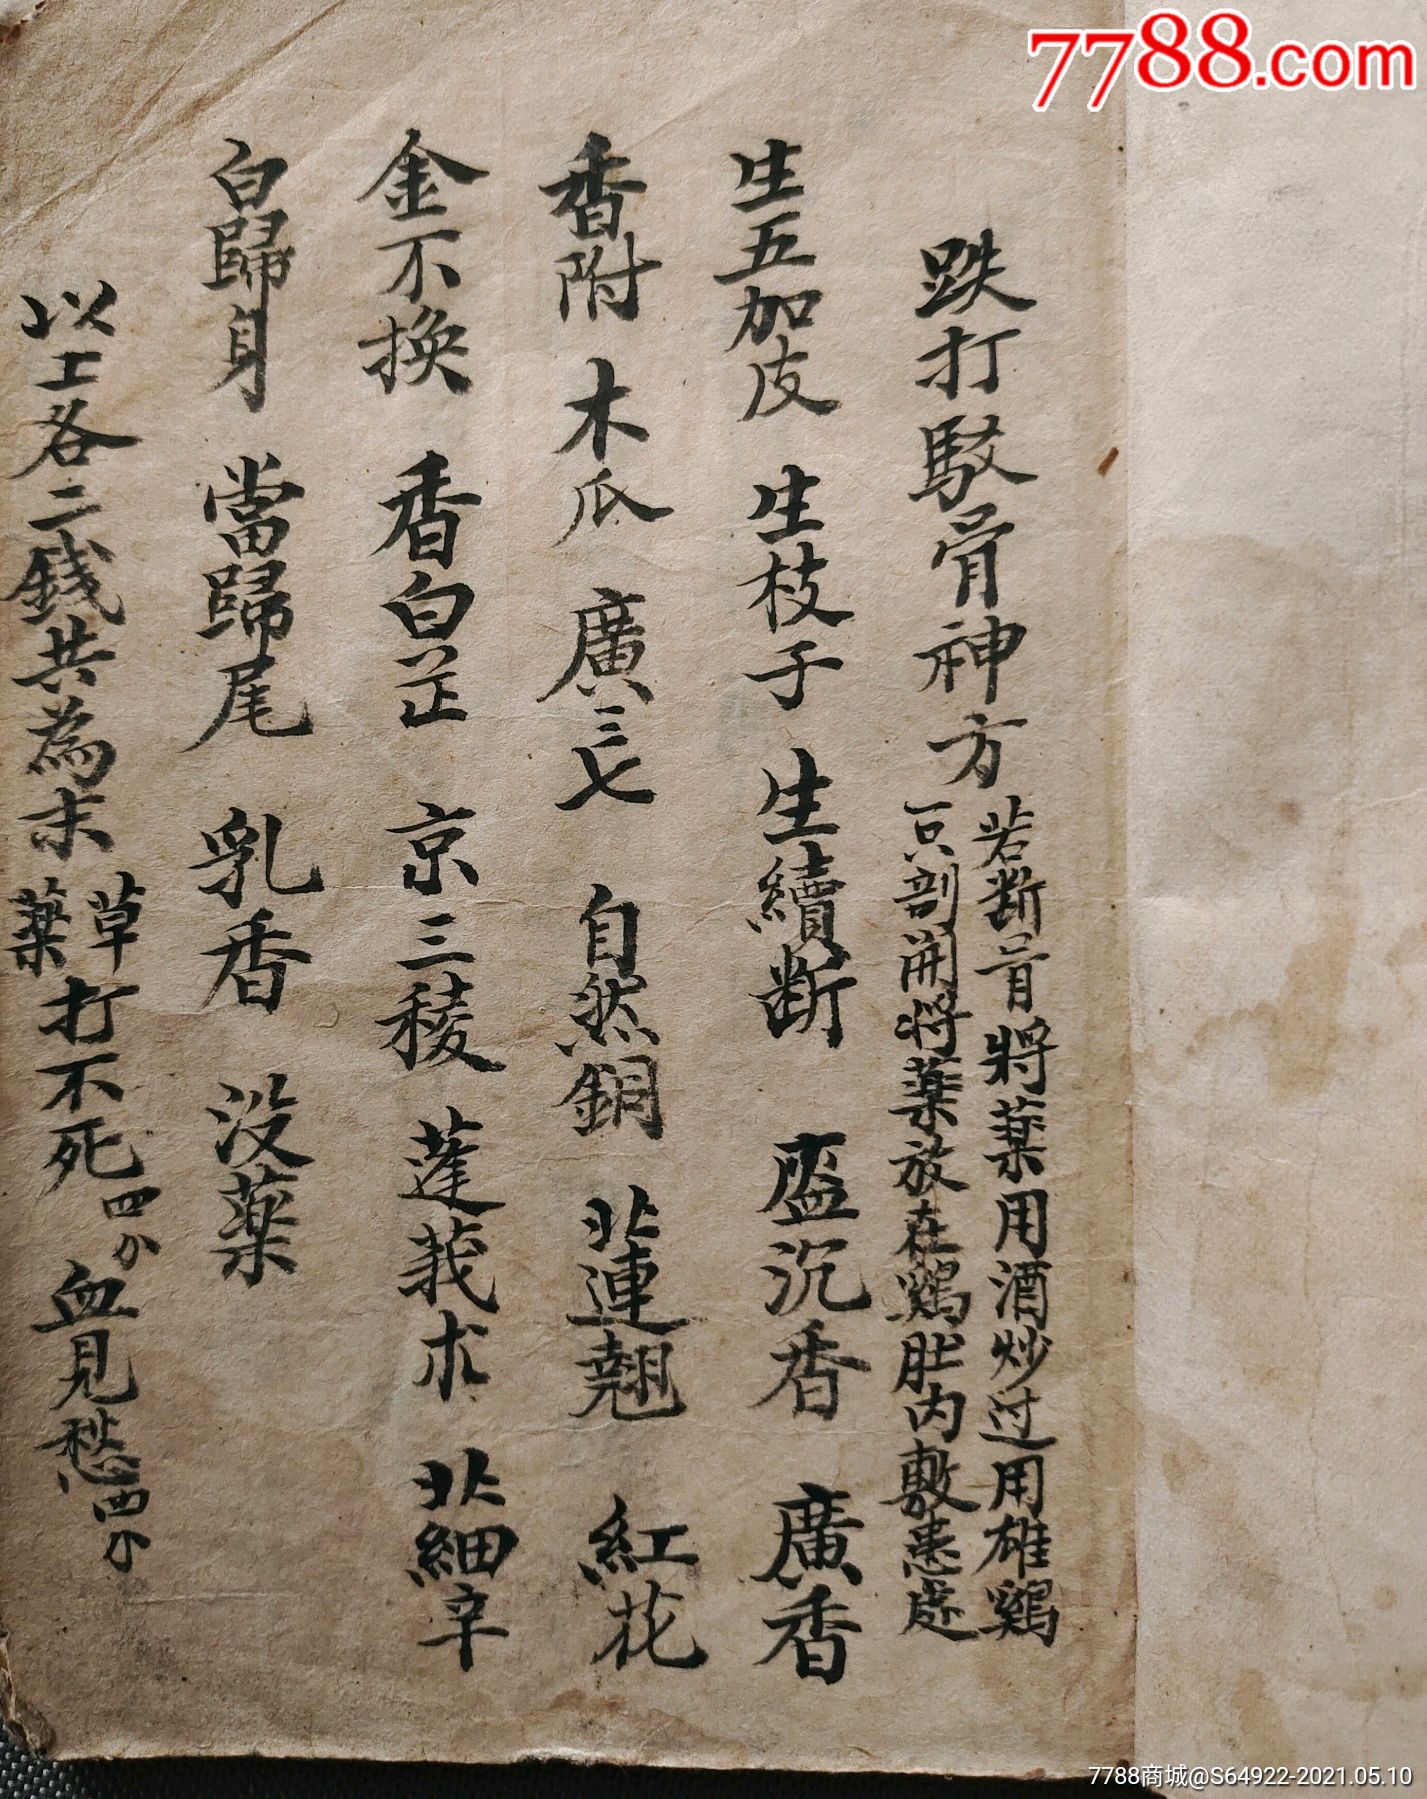 7788.com
跌打駁骨神方
若断骨將薬用酒炒过用雄鷄
一只剖開將薬放在鷄肚内敷患處
生五加皮 生枝子 生續断 盔沉香 廣香
香附 木瓜 廣三七 自然銅 北連翹 紅花
金不換 香白芷 京三稜 蓬莪朮 北細辛
白歸身 當歸尾 乳香 没薬
以上各二錢共為末 草薬打不死四分 血見愁四分
7788商城@S64922-2021.05.10